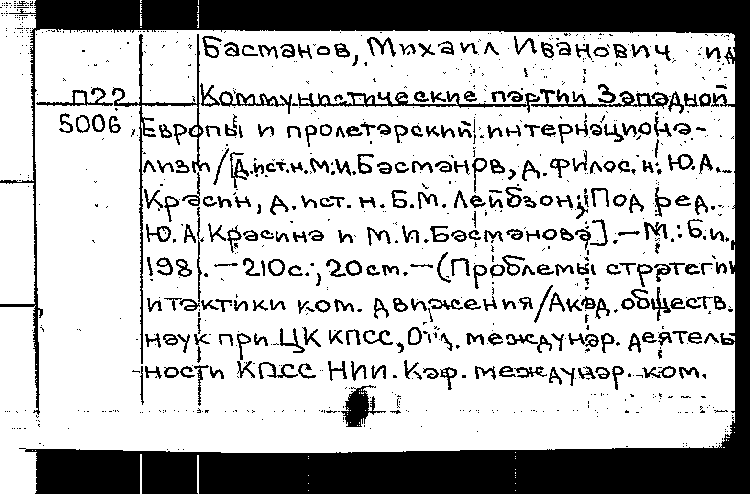 Бастанов, Михаил Иванович и д
п22 Коммунистические партии Западной
5006 Европы и пролетарский интернациона-
лизм/[д.ист.н.М.И.Бастанов, д.филос.н. Ю.А.
Красин, д.ист.н. Б.М. Лейбзон; Под ред.
Ю.А.Красина и М.И.Бастанова].—М.: б.и.,
1981.—210с.; 20см.—(Проблемы стратегии
и тактики ком. движения/Акад. обществ.
наук при ЦК КПСС, Отд. междунар. деятель
ности КПСС НИИ. Каф. междунар. ком.